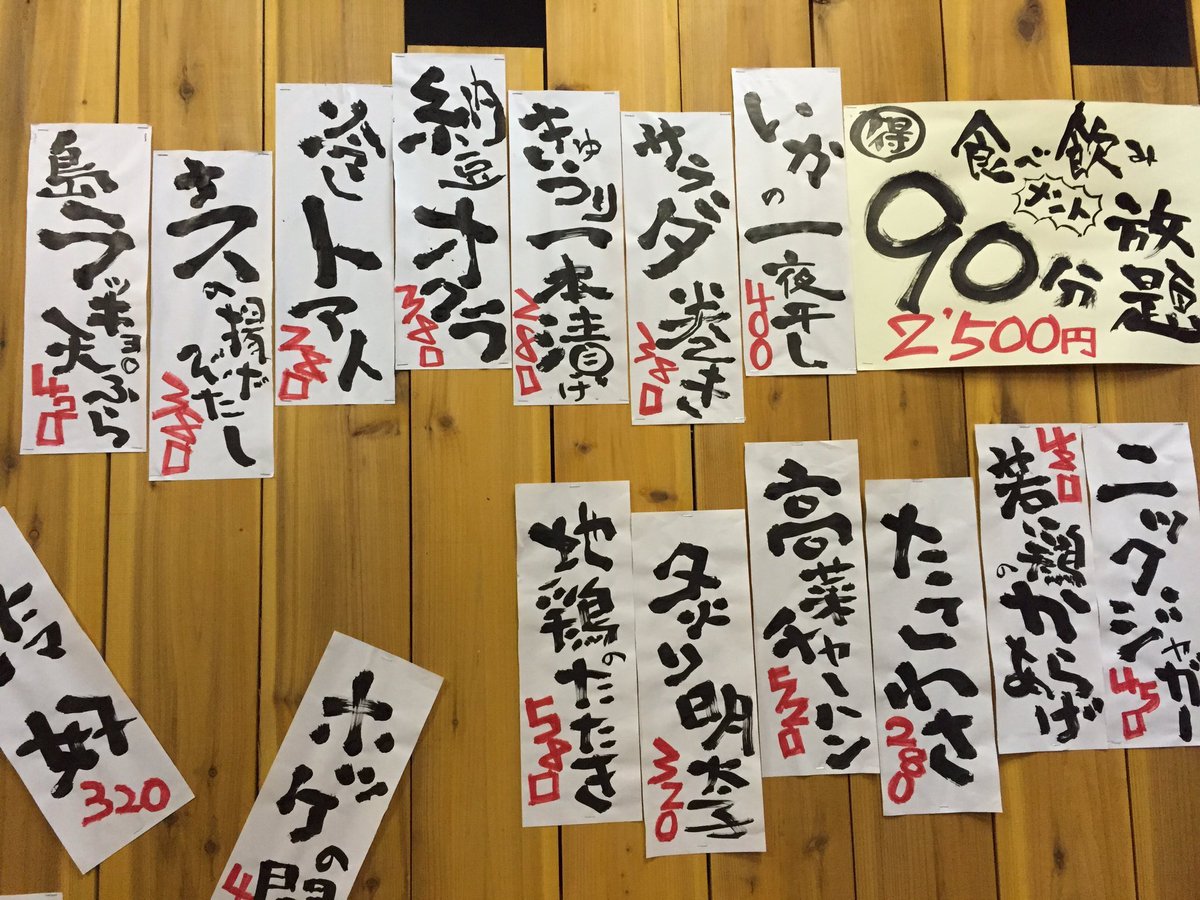 得
食べ飲み放題
メント
90分
2'500円
いかの一夜干し
400
サラダ巻き
380
きゅうり一本漬け
280
納豆オクラ
380
冷しトマト
280
キスの揚げびたし
島ラッキョの天ぷら
ニックジャガー
450
若鶏のからあげ
480
たこわさ
280
高菜チャーハン
520
炙り明太子
320
地鶏のたたき
580
ホッケの開
4
好
320